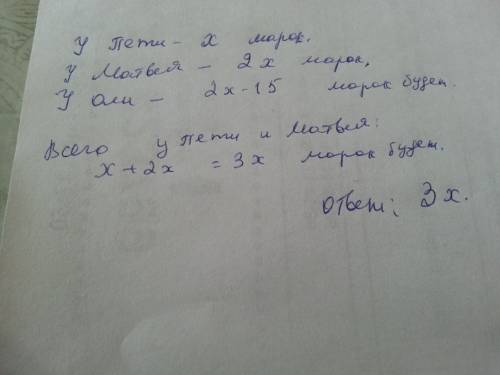 У Пети - х марок.
У Матвея - 2х марок,
У Оли - 2х-15 марок будет.
Всего у Пети и Матвея:
х+2х = 3х марок будет.
Ответ: 3х.